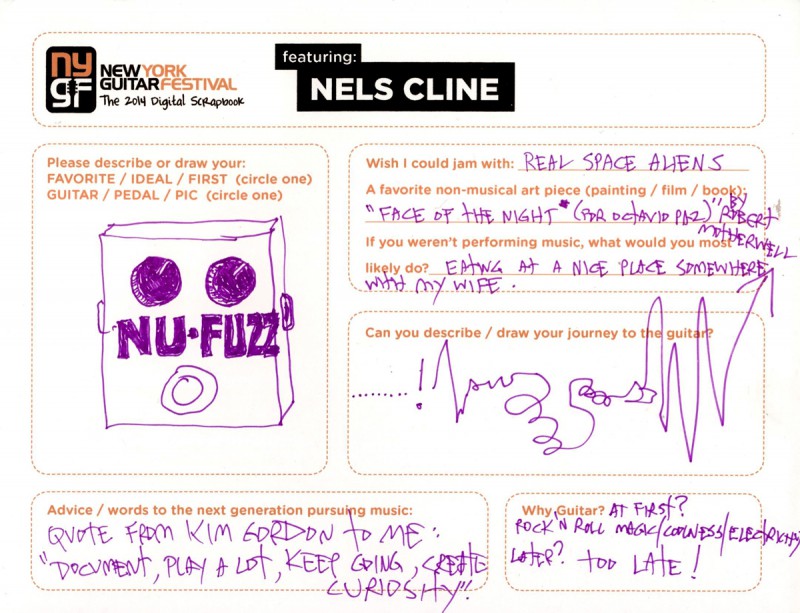 ny
gf
NEWYORK
GUITARFESTIVAL
The 2014 Digital Scrapbook
featuring:
NELS CLINE
Please describe or draw your:
FAVORITE / IDEAL / FIRST (circle one)
GUITAR / PEDAL / PIC (circle one)
NU·FUZZ
Wish I could jam with: REAL SPACE ALIENS
A favorite non-musical art piece (painting / film / book):
"FACE OF THE NIGHT" (FOR OCTAVIO PAZ)" BY ROBERT MOTHERWELL
If you weren't performing music, what would you most
likely do? EATING AT A NICE PLACE SOMEWHERE
WITH MY WIFE.
Can you describe / draw your journey to the guitar?
.........!
Advice / words to the next generation pursuing music:
QUOTE FROM KIM GORDON TO ME:
"DOCUMENT, PLAY A LOT, KEEP GOING, CREATE
CURIOSITY".
Why Guitar? AT FIRST?
ROCK'N ROLL MAGIC/COOLNESS/ELECTRICITY
LATER? TOO LATE!